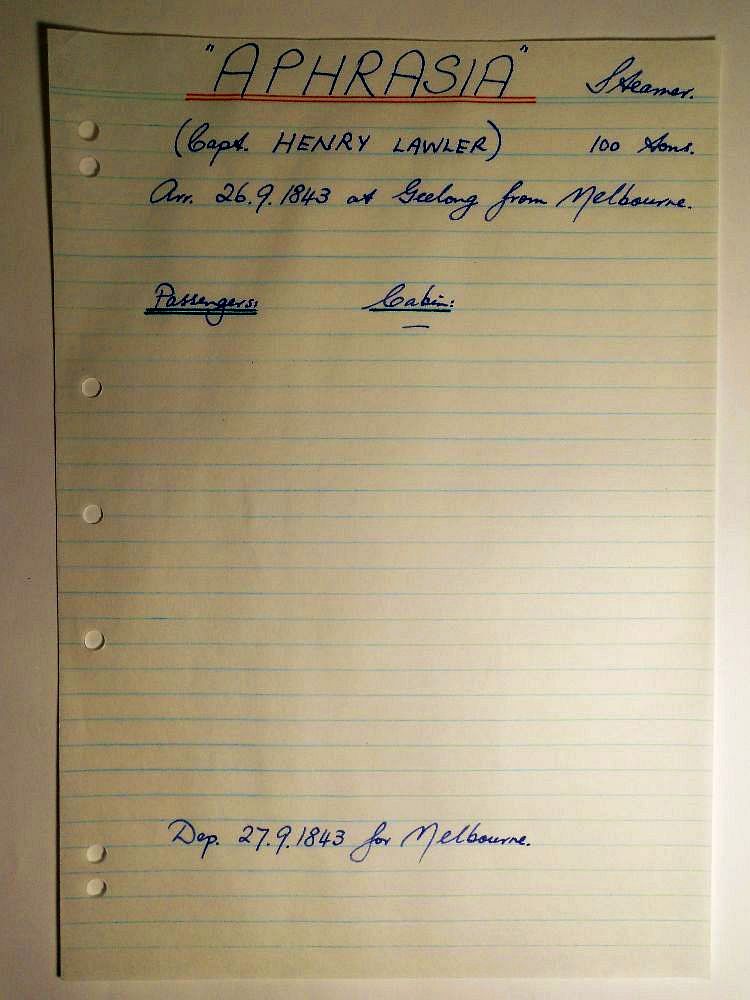 "APHRASIA" Steamer.
(Capt. HENRY LAWLER) 100 tons.
Arr. 26.9.1843 at Geelong from Melbourne.
Passengers: Cabin:
—
Dep. 27.9.1843 for Melbourne.